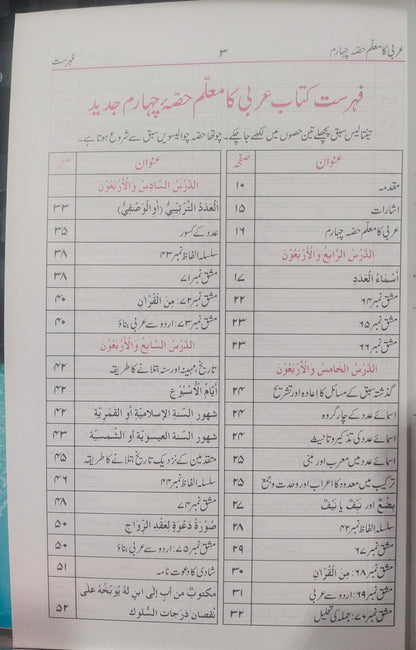 عربی کا معلّم حصہ چہارم
۳
فہرست
فہرست کتاب عربی کا معلّم حصّۂ چہارم جدید
تینتالیس سبق پچھلے تین حصوں میں لکھے جا چکے۔ چوتھا حصہ چوالیسویں سبق سے شروع ہوتا ہے۔
عنوان صفحہ
مقدمہ ۱۰
اشارات ۱۵
عربی کا معلّم حصہ چہارم ۱۶
الدَّرْسُ الرَّابِعُ وَالْأَرْبَعُوْنَ
أَسْمَاءُ الْعَدَدِ ۱۷
مشق نمبر ۶۴ ۲۲
مشق نمبر ۶۵ ۲۳
مشق نمبر ۶۶ ۲۳
الدَّرْسُ الْخَامِسُ وَالْأَرْبَعُوْنَ
گذشتہ سبق کے مسائل کا اعادہ اور تشریح ۲۴
اسمائے عدد کے چار گروہ ۲۴
اسمائے عدد کی تذکیر و تانیث ۲۴
اسمائے عدد میں معرب اور مبنی ۲۵
ترکیب میں معدود کا اعراب اور وحدت و جمع ۲۵
بِضْعٌ اور نَیِّفٌ یا نَیْفٌ ۲۷
سلسلہ الفاظ نمبر ۴۲ ۲۸
مشق نمبر ۶۷ ۲۹
مشق نمبر ۶۸: مِنَ الْقُرْآنِ ۳۰
مشق نمبر ۶۹: اردو سے عربی ۳۱
مشق نمبر ۷۰: جملہ کی تحلیل ۳۲
عنوان صفحہ
الدَّرْسُ السَّادِسُ وَالْأَرْبَعُوْنَ
الْعَدَدُ التَّرْتِيْبِيُّ (أَوِ الْوَصْفِيُّ) ۳۳
عدد کے کسور ۳۵
سلسلہ الفاظ نمبر ۴۳ ۳۸
مشق نمبر ۷۱ ۳۸
مشق نمبر ۷۲: مِنَ الْقُرْآنِ ۴۰
مشق نمبر ۷۳: اردو سے عربی بناؤ ۴۰
الدَّرْسُ السَّابِعُ وَالْأَرْبَعُوْنَ
تاریخ و مہینہ اور سنہ بتلانے کا طریقہ ۴۲
أَيَّامُ الْأُسْبُوْعِ ۴۲
شهور السَّنة الإسلاميّة أو القَمَريّة ۴۲
شهور السَّنة العيسويّة أو الشَّمسيّة ۴۳
متقدمین کے نزدیک تاریخ بتلانے کا طریقہ ۴۵
سلسلہ الفاظ نمبر ۴۴ ۴۶
مشق نمبر ۷۴ ۴۸
صُوْرَةُ دَعْوَةٍ لِعَقْدِ الزَّوَاجِ ۵۰
مشق نمبر ۷۵: اردو سے عربی بناؤ ۵۰
شادی کا دعوت نامہ ۵۱
مكتوبٌ من أبٍ إلى ابنٍ له يُوَبِّخُهُ على
نُقصان دَرجات السُّلوك ۵۲